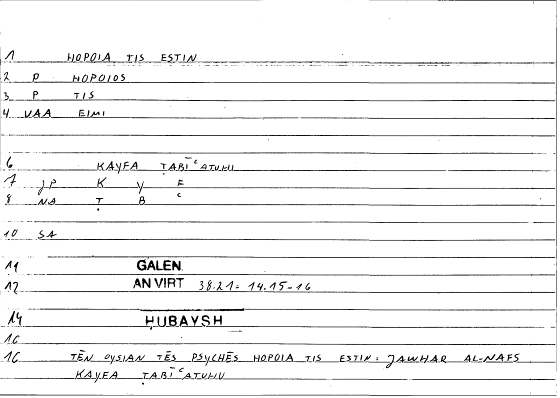 1 HOPOIA TIS ESTIN
2 P HOPOIOS
3 P TIS
4 VAA EIMI
6 KAYFA ṬABĪʿATUHU
7 JP K Y F
8 NA Ṭ B ʿ
10 SA
11 GALEN
12 AN VIRT 38.21 = 14.15-16
14 ḤUBAYSH
16
16 TĒN OYSIAN TĒS PSYCHĒS HOPOIA TIS ESTIN: JAWHAR AL-NAFS
KAYFA ṬABĪʿATUHU